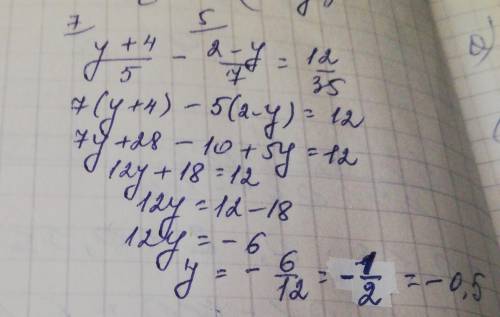 7 5
(y + 4)/5 − (2 − y)/7 = 12/35
7(y+4) − 5(2−y) = 12
7y + 28 − 10 + 5y = 12
12y + 18 = 12
12y = 12 − 18
12y = − 6
y = − 6/12 = −1/2 = − 0,5